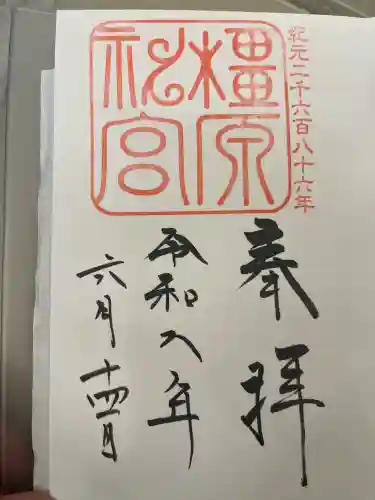 紀元二千六百八十六年
橿原
神宮
奉拝
令和八年
六月十四日